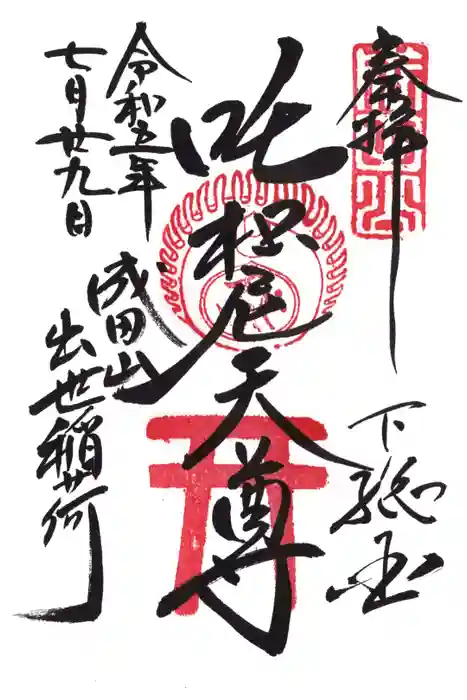 奉拝
下総国
吒枳尼天尊
成田山
出世稲荷
令和五年
七月廿九日